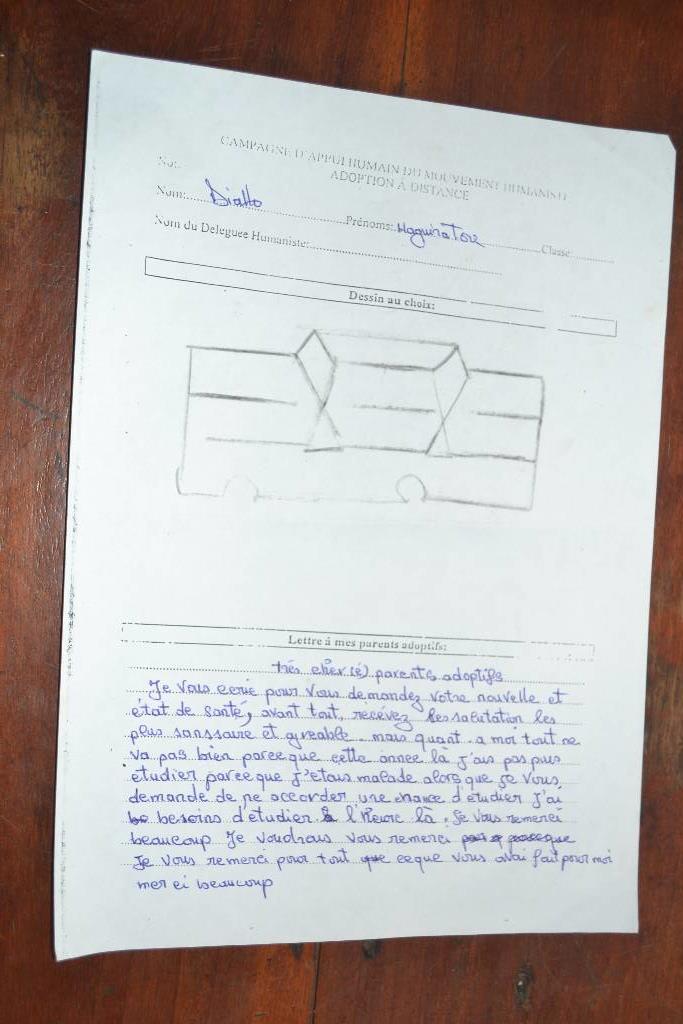 CAMPAGNE D'APPUI HUMAIN DU MOUVEMENT HUMANISTE
ADOPTION À DISTANCE
No:
Nom: Diallo Prénoms: Classe
Nom du Deleguee Humaniste:
Dessin au choix:
Lettre à mes parents adoptifs:
très cher(é) parents adoptifs
Je vous ecrié pour vous demandez votre nouvelle et
état de santé, avant tout, recévez les salutation les
plus sanssaire et agreable. mais quant a moi tout ne
va pas bien parce que cette année là j'ais pas puis
étudier parce que j'étais malade alors que je vous
demande de ne accorder une chance d'étudier j'ai
besoins d'étudier à l'heure là. Je vous remerci
beaucoup Je voudrais vous remerci
Je vous remerci pour tout ceque vous avai fait pour moi
mer ci beaucoup